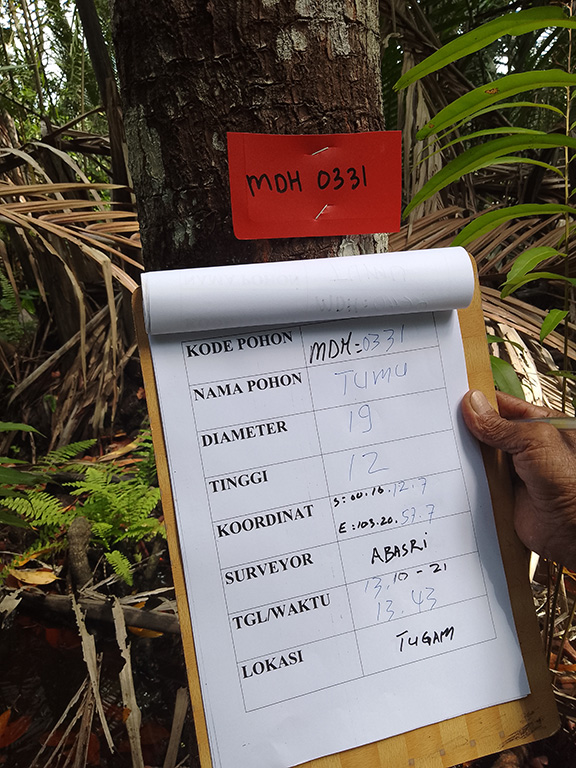 MDH 0331
KODE POHON MDH=0331
NAMA POHON TUMU
DIAMETER 19
TINGGI 12
KOORDINAT S:00.16.12.7
E:103.20.57.7
SURVEYOR ABASRI
TGL/WAKTU 13.10-21
13.43
LOKASI TUGAM